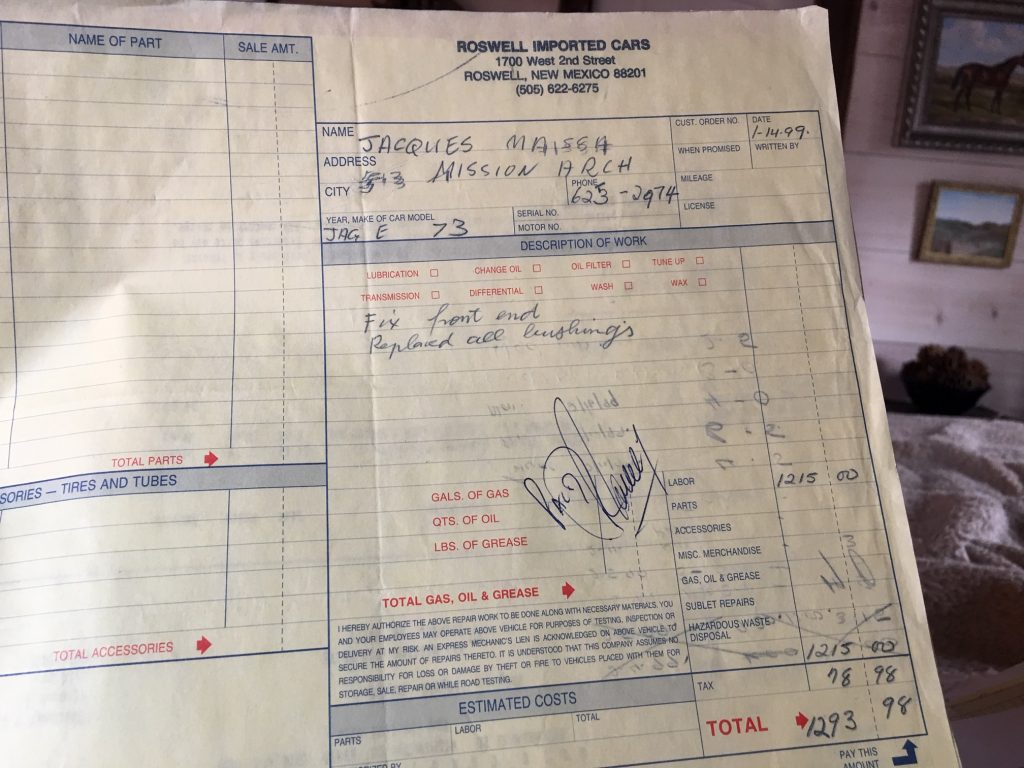 NAME OF PART SALE AMT.
TOTAL PARTS
SORIES — TIRES AND TUBES
TOTAL ACCESSORIES
ROSWELL IMPORTED CARS
1700 West 2nd Street
ROSWELL, NEW MEXICO 88201
(505) 622-6275
NAME JACQUES
ADDRESS MISSION ARCH
CITY
PHONE 623-2974
CUST. ORDER NO.
DATE 1-14-99.
WHEN PROMISED
WRITTEN BY
MILEAGE
LICENSE
YEAR, MAKE OF CAR MODEL
JAG E 73
SERIAL NO.
MOTOR NO.
DESCRIPTION OF WORK
LUBRICATION CHANGE OIL OIL FILTER TUNE UP
TRANSMISSION DIFFERENTIAL WASH WAX
Fix front end
Replaced all bushings
GALS. OF GAS
QTS. OF OIL
LBS. OF GREASE
TOTAL GAS, OIL & GREASE
I HEREBY AUTHORIZE THE ABOVE REPAIR WORK TO BE DONE ALONG WITH NECESSARY MATERIALS. YOU
AND YOUR EMPLOYEES MAY OPERATE ABOVE VEHICLE FOR PURPOSES OF TESTING, INSPECTION OR
DELIVERY AT MY RISK. AN EXPRESS MECHANIC'S LIEN IS ACKNOWLEDGED ON ABOVE VEHICLE TO
SECURE THE AMOUNT OF REPAIRS THERETO. IT IS UNDERSTOOD THAT THIS COMPANY ASSUMES NO
RESPONSIBILITY FOR LOSS OR DAMAGE BY THEFT OR FIRE TO VEHICLES PLACED WITH THEM FOR
STORAGE, SALE, REPAIR OR WHILE ROAD TESTING.
LABOR 1215 00
PARTS
ACCESSORIES
MISC. MERCHANDISE
GAS, OIL & GREASE
SUBLET REPAIRS
HAZARDOUS WASTE
DISPOSAL
1215 00
TAX 78 98
TOTAL 1293 98
ESTIMATED COSTS
PARTS LABOR TOTAL
PAY THIS
AMOUNT